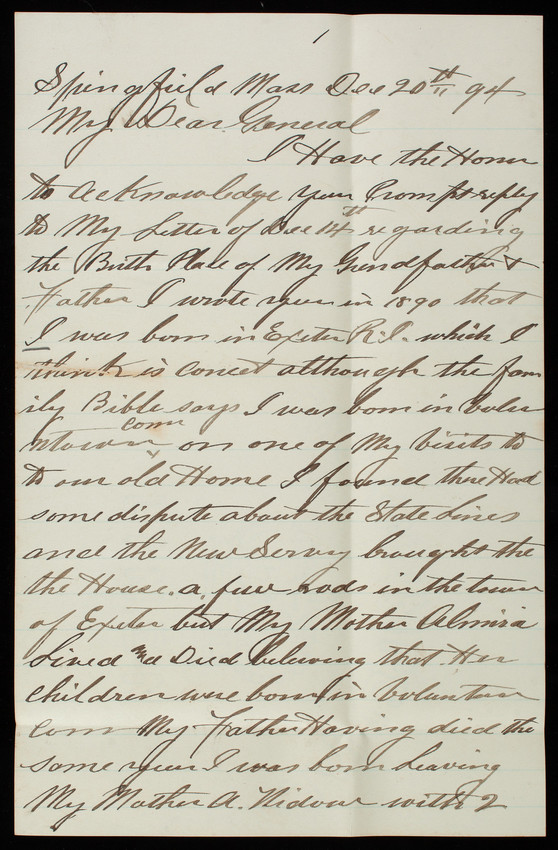 1
Springfield Mass Dec 20th 94
My Dear General
I Have the Honor
to acknowledge your Prompt reply
to My Letter of Dec 14th regarding
the Birth Place of My Grandfather &
Father I wrote you in 1890 that
I was born in Exeter R.I. which I
think is correct although the fam
ily Bible says I was born in Volu
ntown Conn on one of My Visits to
to our old Home I found there Had
some dispute about the State Lines
and the New Servy brought the
the House a few rods in the town
of Exeter but My Mother Almira
Lived and Died beleiving that Her
children were born in Voluntown
Conn My Father Having died the
same year I was born Leaving
My Mother A. Widow with 2